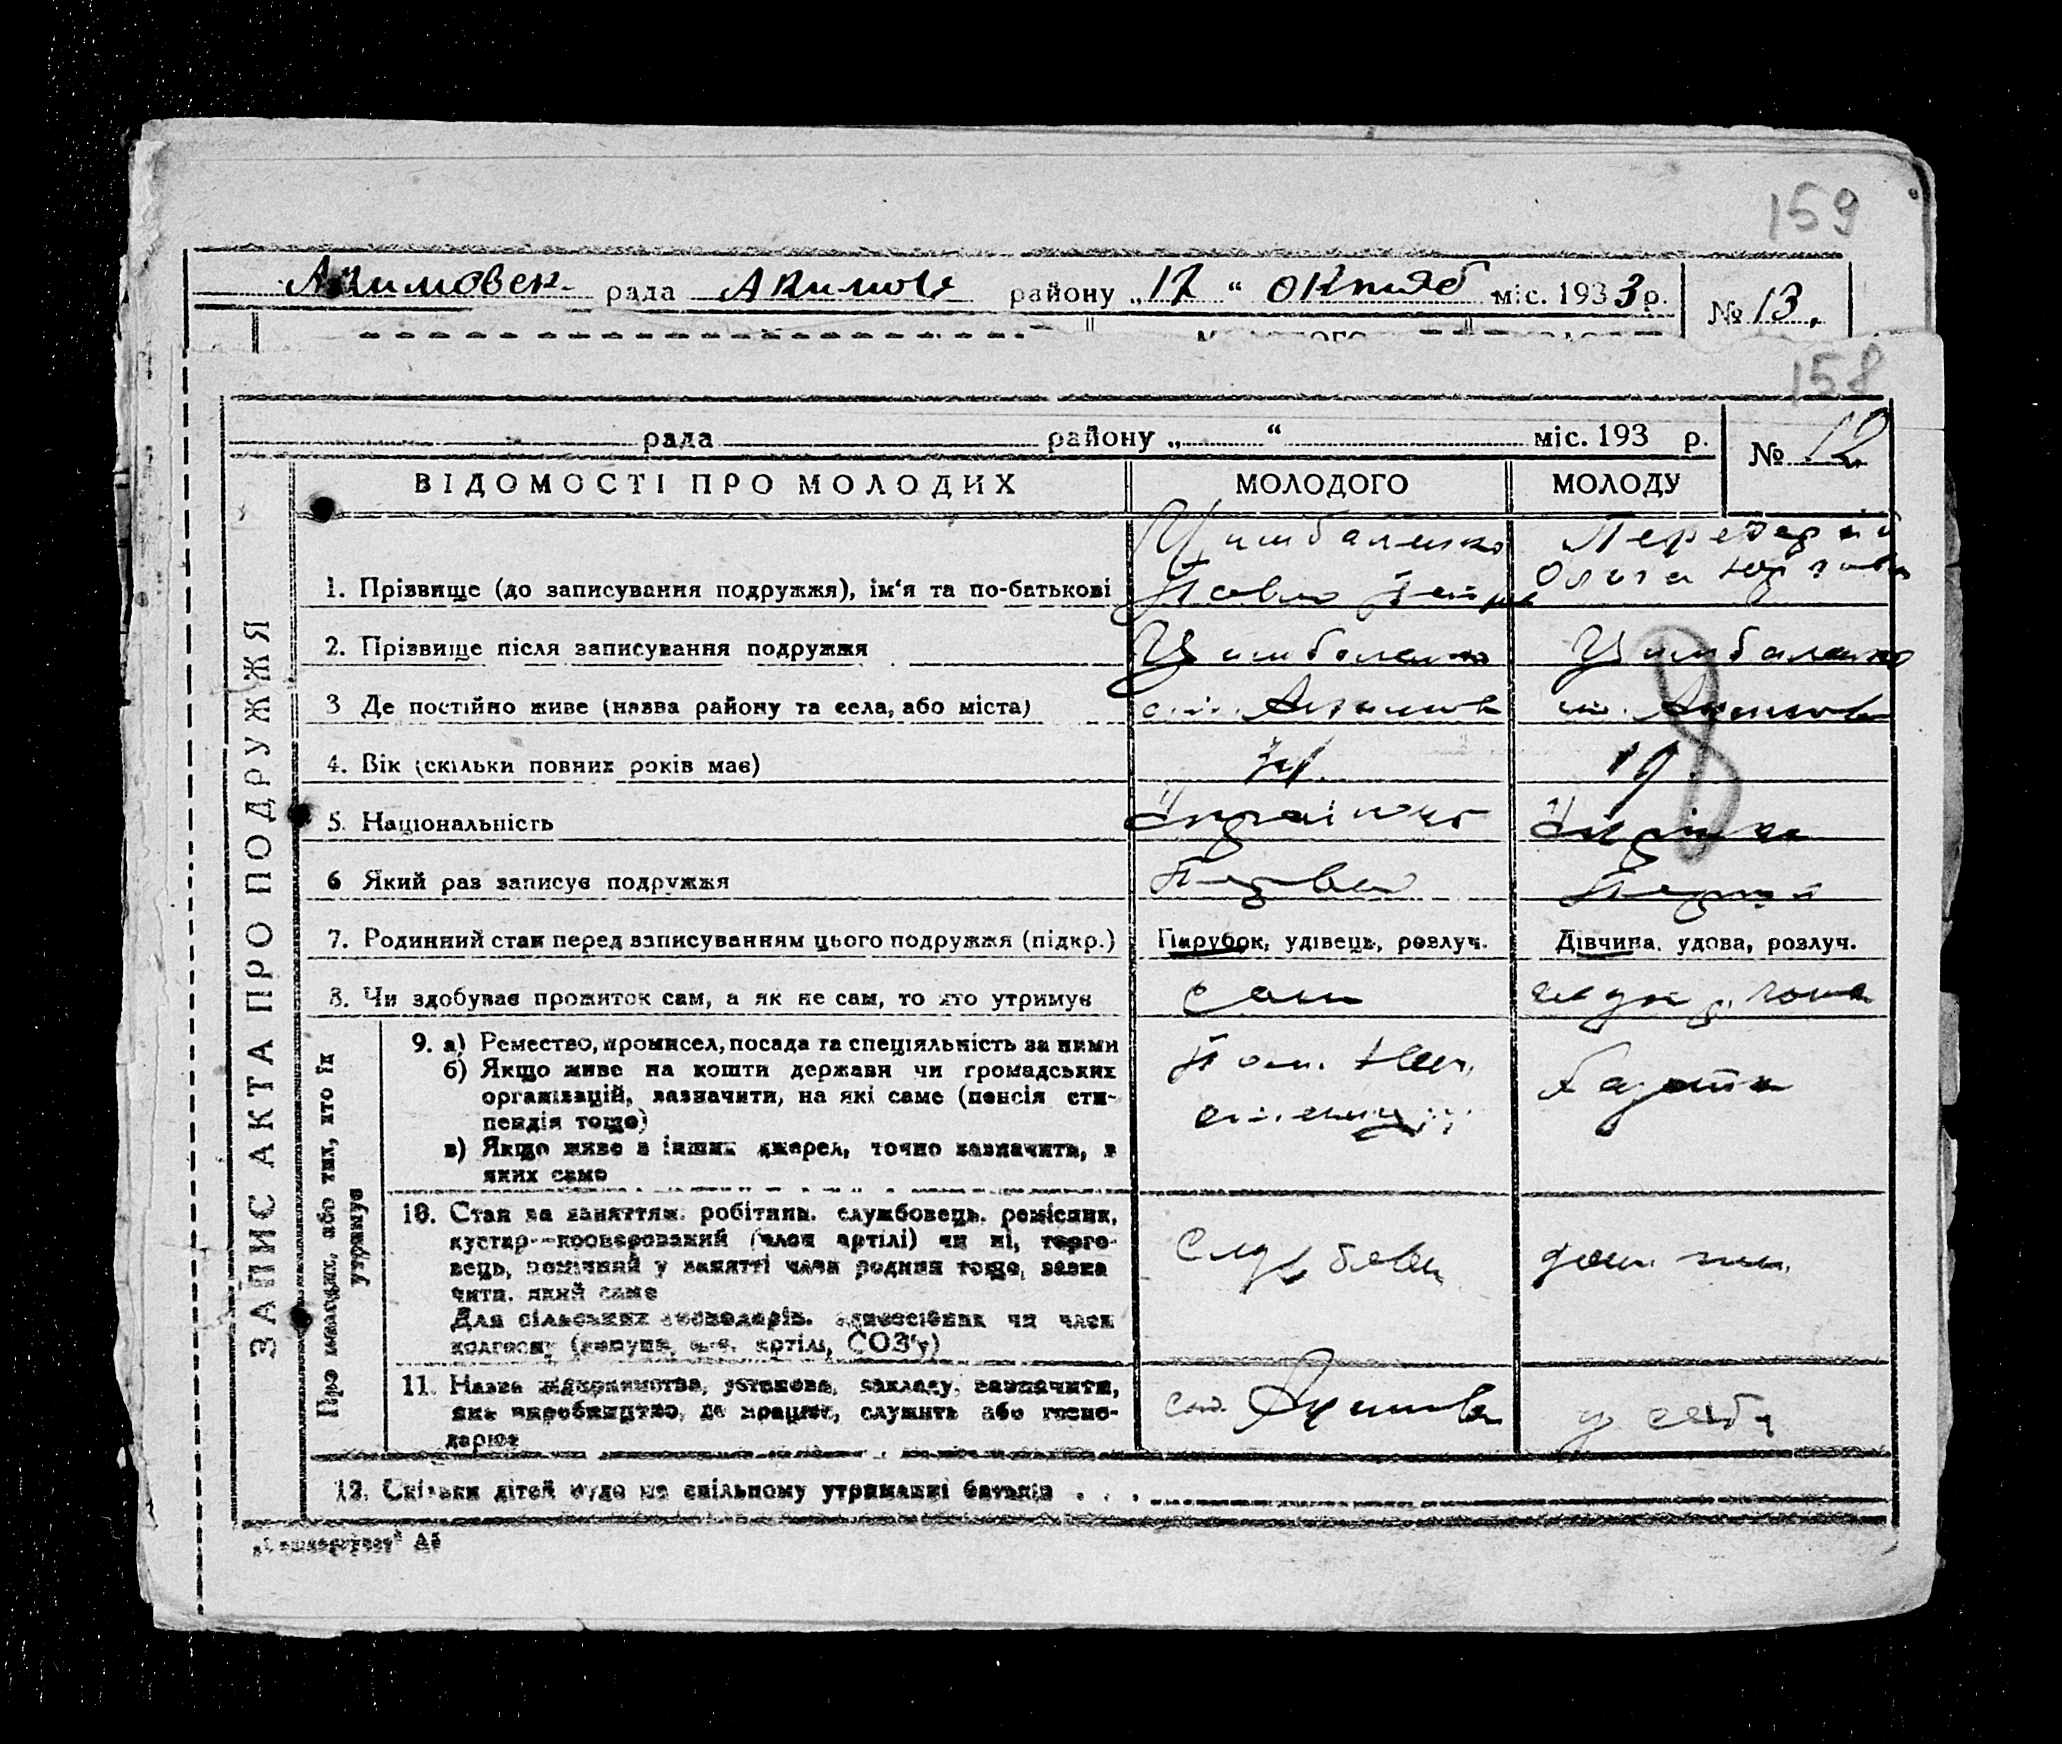 159
Акимовск. рада Акимовс району „17“ октяб міс. 1933 р. № 13.
158
рада району „ “ міс. 193 р. № 12
ВІДОМОСТІ ПРО МОЛОДИХ МОЛОДОГО МОЛОДУ
ЗАПИС АКТА ПРО ПОДРУЖЖЯ
Цимбаленко
1. Прізвище (до записування подружжя), ім‘я та по-батькові Павло Петров Ольга
2. Прізвище після записування подружжя Цимбаленко Цимбаленко
3 Де постійно живе (назва району та села, або міста) ст. Акимов ст. Акимов
4. Вік (скільки повних років має) 19
5. Національність
6 Який раз записує подружжя Первий
7. Родинний стан перед записуванням цього подружжя (підкр.) Парубок, удівець, розлуч. Дівчина, удова, розлуч.
8. Чи здобуває прожиток сам, а як не сам, то хто утримує сам
Про молодих, або тих, хто їх утримує
9. а) Ремество, промисел, посада та спеціяльність за ними
б) Якщо живе на кошти держави чи громадських
організацій, зазначити, на які саме (пенсія сти-
пендія тощо)
в) Якщо живе з інших джерел, точно зазначити, з
яких саме
Пом. Нач.
станции
10. Стан за заняттям: робітник, службовець, ремісник,
кустар—кооперований (член артілі) чи ні, торго-
вець, помічний у занятті член родини тощо, зазна
чити, який саме
Для сільських господарів: одноосібник чи член
колгоспу (комуна, с.-г. артіль, СОЗ‘у)
Службов дом. хоз.
11. Назва підприємства, установи, закладу, зазначити,
яке виробництво, де працює, служить або госпо-
дарює
ст. Акимов у себя
12. Скільки дітей буде на спільному утриманні батьків . . .